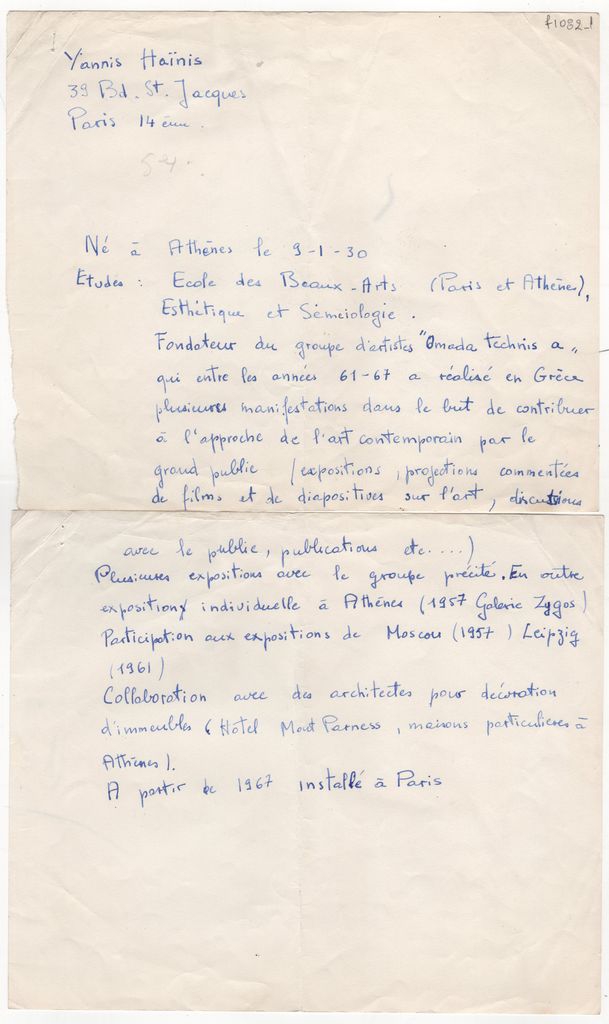 f1032_1
Yannis Haïnis
39 Bd. St. Jacques
Paris 14 ème.
54.
Né à Athènes le 9-1-30
Etudes : Ecole des Beaux-Arts (Paris et Athènes),
Esthétique et Sémeiologie.
Fondateur du groupe d'artistes "Omada technis a"
qui entre les années 61-67 a réalisé en Grèce
plusieures manifestations dans le but de contribuer
à l'approche de l'art contemporain par le
grand public (expositions, projections commentées
de films et de diapositives sur l'art, discutions
avec le public, publications etc....)
Plusieures expositions avec le groupe précité. En outre
exposition individuelle à Athènes (1957 Galerie Zygos)
Participation aux expositions de Moscou (1957) Leipzig
(1961)
Collaboration avec des architectes pour décoration
d'immeubles (Hôtel Mont Parness, maisons particulieres à
Athènes).
A partir de 1967 installé à Paris